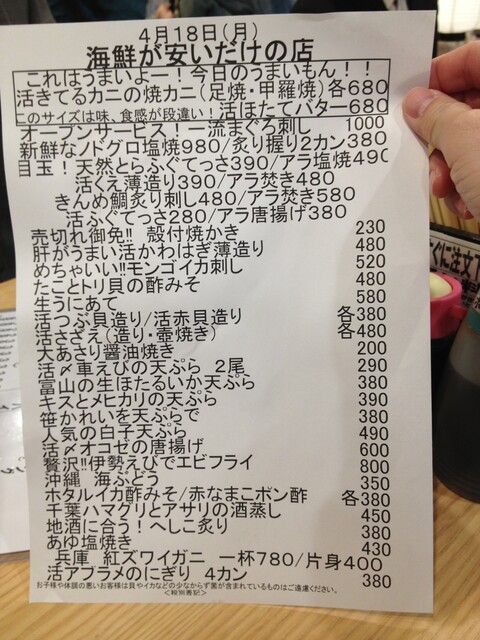 4月18日(月)
海鮮が安いだけの店
これはうまいよー!今日のうまいもん!!
活きてるカニの焼カニ(足焼・甲羅焼)各680
このサイズは味、食感が段違い!活ほたてバター680
オープンサービス!一流まぐろ刺し 1000
新鮮なノドグロ塩焼980/炙り握り2カン380
目玉!天然とらふぐてっさ390/アラ塩焼490
活くえ薄造り390/アラ焚き480
きんめ鯛炙り刺し480/アラ焚き580
活ふぐてっさ280/アラ唐揚げ380
売切れ御免!! 殻付焼かき 230
肝がうまい活かわはぎ薄造り 480
めちゃいい!!モンゴイカ刺し 520
たことトリ貝の酢みそ 480
生うにあて 580
活つぶ貝造り/活赤貝造り 各380
活さざえ(造り・壺焼き) 各480
大あさり醤油焼き 200
活〆車えびの天ぷら 2尾 290
富山の生ほたるいか天ぷら 380
キスとメヒカリの天ぷら 390
笹かれいを天ぷらで 380
人気の白子天ぷら 490
活〆オコゼの唐揚げ 600
贅沢!!伊勢えびでエビフライ 800
沖縄 海ぶどう 350
ホタルイカ酢みそ/赤なまこポン酢 各380
千葉ハマグリとアサリの酒蒸し 450
地酒に合う!へしこ炙り 380
あゆ塩焼き 430
兵庫 紅ズワイガニ 一杯780/片身400
活アブラメのにぎり 4カン 380
お子様や体調の悪いお客様は貝やイカなどの少なからず菌が含まれているものはご遠慮ください。
<税別表記>
すぐに注文